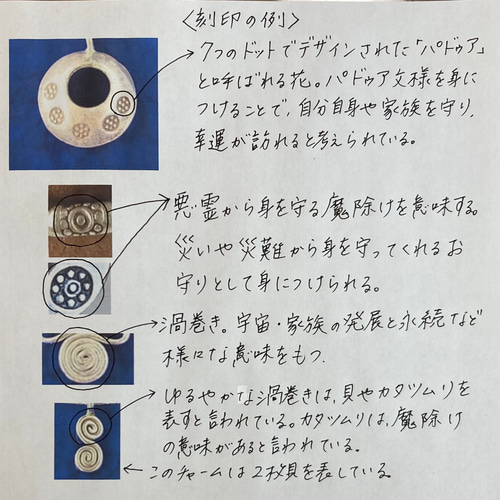 〈刻印の例〉
7つのドットでデザインされた「パドゥア」
と呼ばれる花。パドゥア文様を身に
つけることで、自分自身や家族を守り、
幸運が訪れると考えられている。
悪霊から身を守る魔除けを意味する。
災いや災難から身を守ってくれるお
守りとして身につけられる。
渦巻き。宇宙・家族の発展と永続など
様々な意味をもつ。
ゆるやかな渦巻きは、貝やカタツムリを
表すと言われている。カタツムリは、魔除け
の意味があると言われている。
このチャームは2枚貝を表している。